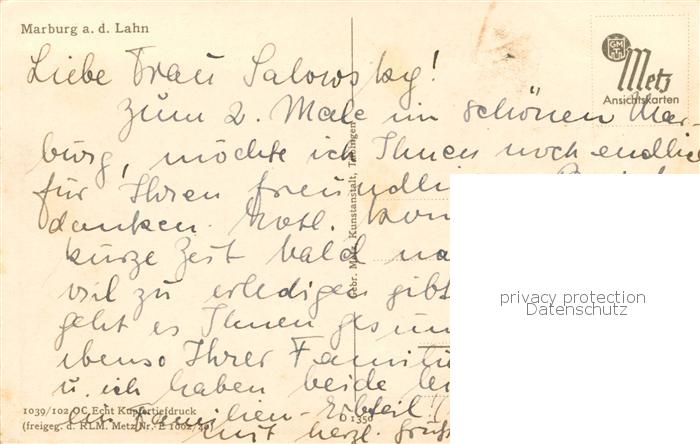 Marburg a. d. Lahn
GMT
Metz
Ansichtskarten
Liebe Frau Salowsky!
zum 2. Male im schönen Mar-
burg, möchte ich Ihnen noch endlich
für Ihren freundli
danken.
kurze Zeit bald na
viel zu erledigen gibt
geht es Ihnen gesun
ebenso Ihrer Familie
u. ich haben beide
ein Familien-Erbteil!
mit herzl. Grüß
Gebr. Metz, Kunstanstalt, Tübingen
D 1350
1039/102 OC Echt Kupfertiefdruck
(freigeg. d. RLM. Metz Nr. E 1002/
privacy protection
Datenschutz